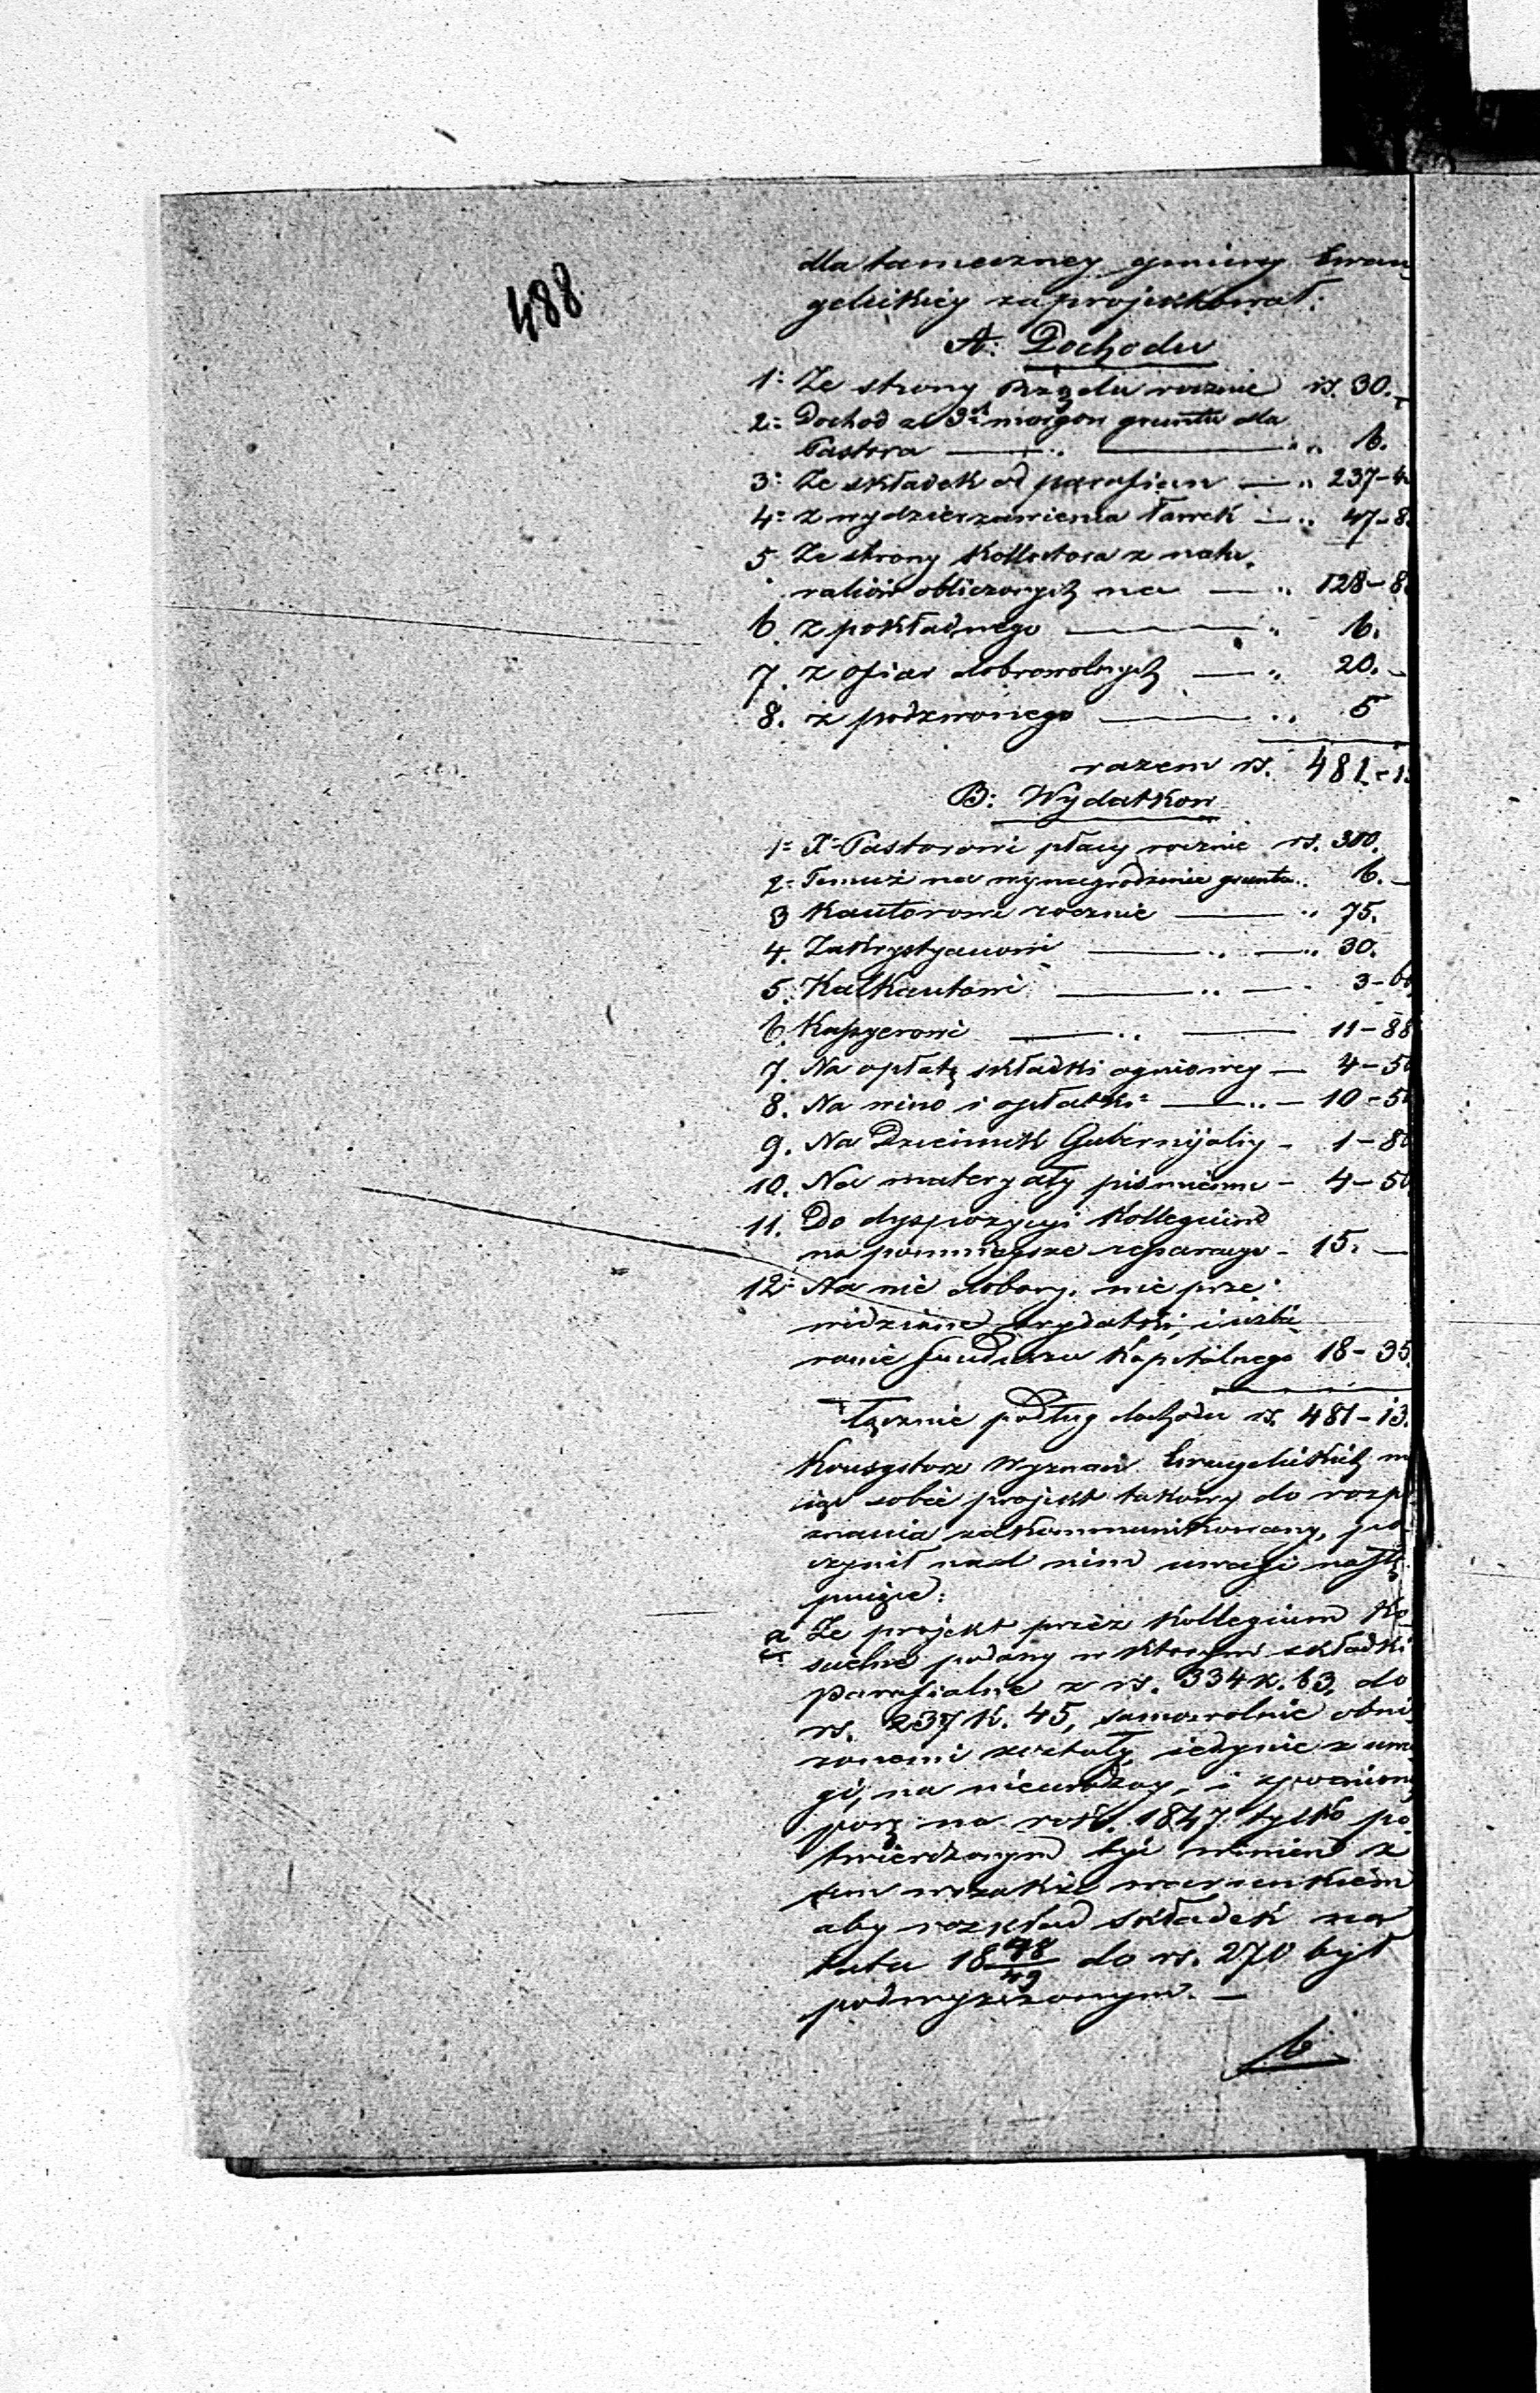 488
dla tameczney gminy Ewan
gelickiey zaprojektował:
A: Dochodu
1: Ze strony Rządu rocznie rs. 30. –
2: Dochod z 3ch morgow gruntu dla
Pastora — „ 6.
3: Ze składek od parafian — „ 237–4
4: z wydzierzawienia ławek — „ 47–8
5 Ze strony Kollatora z natu
raliów obliczonych na — „ 128–8
6. z pokładnego — „ 6.
7. z ofiar dobrowolnych — „ 20. –
8. z podzwonego — „ 5
razem rs. 481–1
B: Wydatkow
1: X. Pastorowi płacy rocznie rs. 300.
2: Temuż na wynagrodzenie gruntu „ 6. –
3 Kantorowi rocznie — „ 75.
4. Zakrystyanowi — „ — „ 30.
5. Kalkantowi — „ — „ 3–60
6. Kassyerowi — „ — 11–88
7. Na opłatę składki ogniowey — 4–50
8. Na wino i opłatki — „ — 10–50
9. Na Dziennik Gubernijalny – 1–80
10. Na materyały piśmienne – 4–50
11. Do dyspozycyi Kollegium
na pomnieysze reparacye – 15. —
12: Na nie dobory, nie prze
widziane wydatki, i uzbi
ranie funduszu Kapitalnego 18–35
Łącznie podług dochodu rs. 481–13.
Konsystorz Wyznań Ewangelickich m
iąc sobie projekt takowy do rozpo
znania zakommunikowany, po
czynił nad nim uwagi nastę
puiące:
a Ze projekt przez Kollegium Ko
scielne podany w ktorym składki
parafialne z rs. 334 k. 63, do
rs. 237 k. 45, samowolnie obni
zonemi zostały, iedynie z uwa
gi, na nieurodzay, i spoznioną
porę na rok 1847 tylko po
twierdzonym być winien z
tem wszakże warunkiem
aby rozkład składek na
lata 1848/49 do rs. 270 był
podwyższonym. —
b